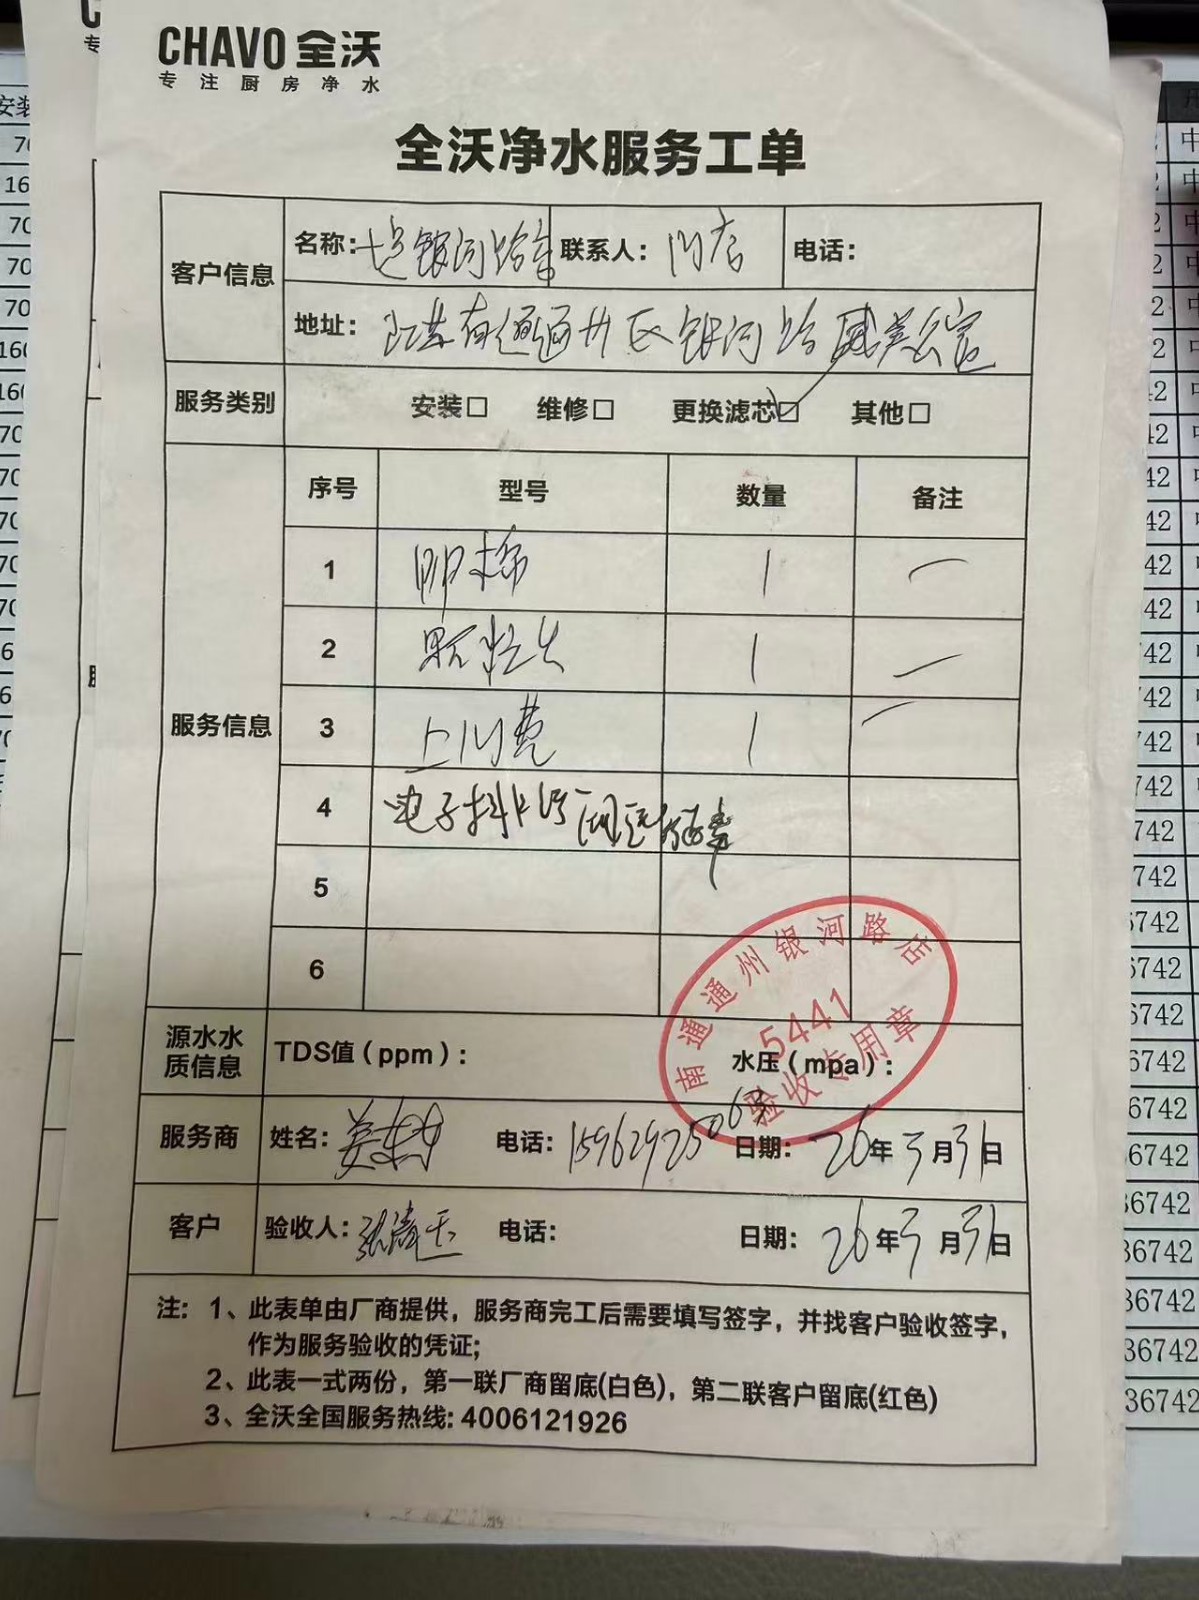 CHAVO 全沃
专注厨房净水
全沃净水服务工单
客户信息
名称： 银河路店 联系人： 门店 电话：
地址： 江苏南通通州区银河路
服务类别 安装□ 维修□ 更换滤芯☑ 其他□
服务信息
序号 型号 数量 备注
1 PP棉 1 一
2 颗粒炭 1 一
3 上门费 1 一
4 电子
5
6
南通通州银河路店
5441
验收专用章
源水水质信息 TDS值（ppm）： 水压（mpa）：
服务商 姓名： 电话：15962925063 日期：26年3月31日
客户 验收人： 电话： 日期：26年3月31日
注：1、此表单由厂商提供，服务商完工后需要填写签字，并找客户验收签字，
作为服务验收的凭证；
2、此表一式两份，第一联厂商留底(白色)，第二联客户留底(红色)
3、全沃全国服务热线：4006121926